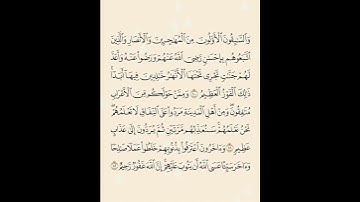 وَٱلسَّـٰبِقُونَ ٱلْأَوَّلُونَ مِنَ ٱلْمُهَـٰجِرِينَ وَٱلْأَنصَارِ وَٱلَّذِينَ
ٱتَّبَعُوهُم بِإِحْسَـٰنٍ رَّضِىَ ٱللَّهُ عَنْهُمْ وَرَضُوا۟ عَنْهُ وَأَعَدَّ
لَهُمْ جَنَّـٰتٍ تَجْرِى تَحْتَهَا ٱلْأَنْهَـٰرُ خَـٰلِدِينَ فِيهَآ أَبَدًا
ذَٰلِكَ ٱلْفَوْزُ ٱلْعَظِيمُ ۝ وَمِمَّنْ حَوْلَكُم مِّنَ ٱلْأَعْرَابِ
مُنَـٰفِقُونَ وَمِنْ أَهْلِ ٱلْمَدِينَةِ مَرَدُوا۟ عَلَى ٱلنِّفَاقِ لَا تَعْلَمُهُمْ
نَحْنُ نَعْلَمُهُمْ سَنُعَذِّبُهُم مَّرَّتَيْنِ ثُمَّ يُرَدُّونَ إِلَىٰ عَذَابٍ
عَظِيمٍ ۝ وَءَاخَرُونَ ٱعْتَرَفُوا۟ بِذُنُوبِهِمْ خَلَطُوا۟ عَمَلًا صَـٰلِحًا
وَءَاخَرَ سَيِّئًا عَسَى ٱللَّهُ أَن يَتُوبَ عَلَيْهِمْ إِنَّ ٱللَّهَ غَفُورٌ رَّحِيمٌ ۝